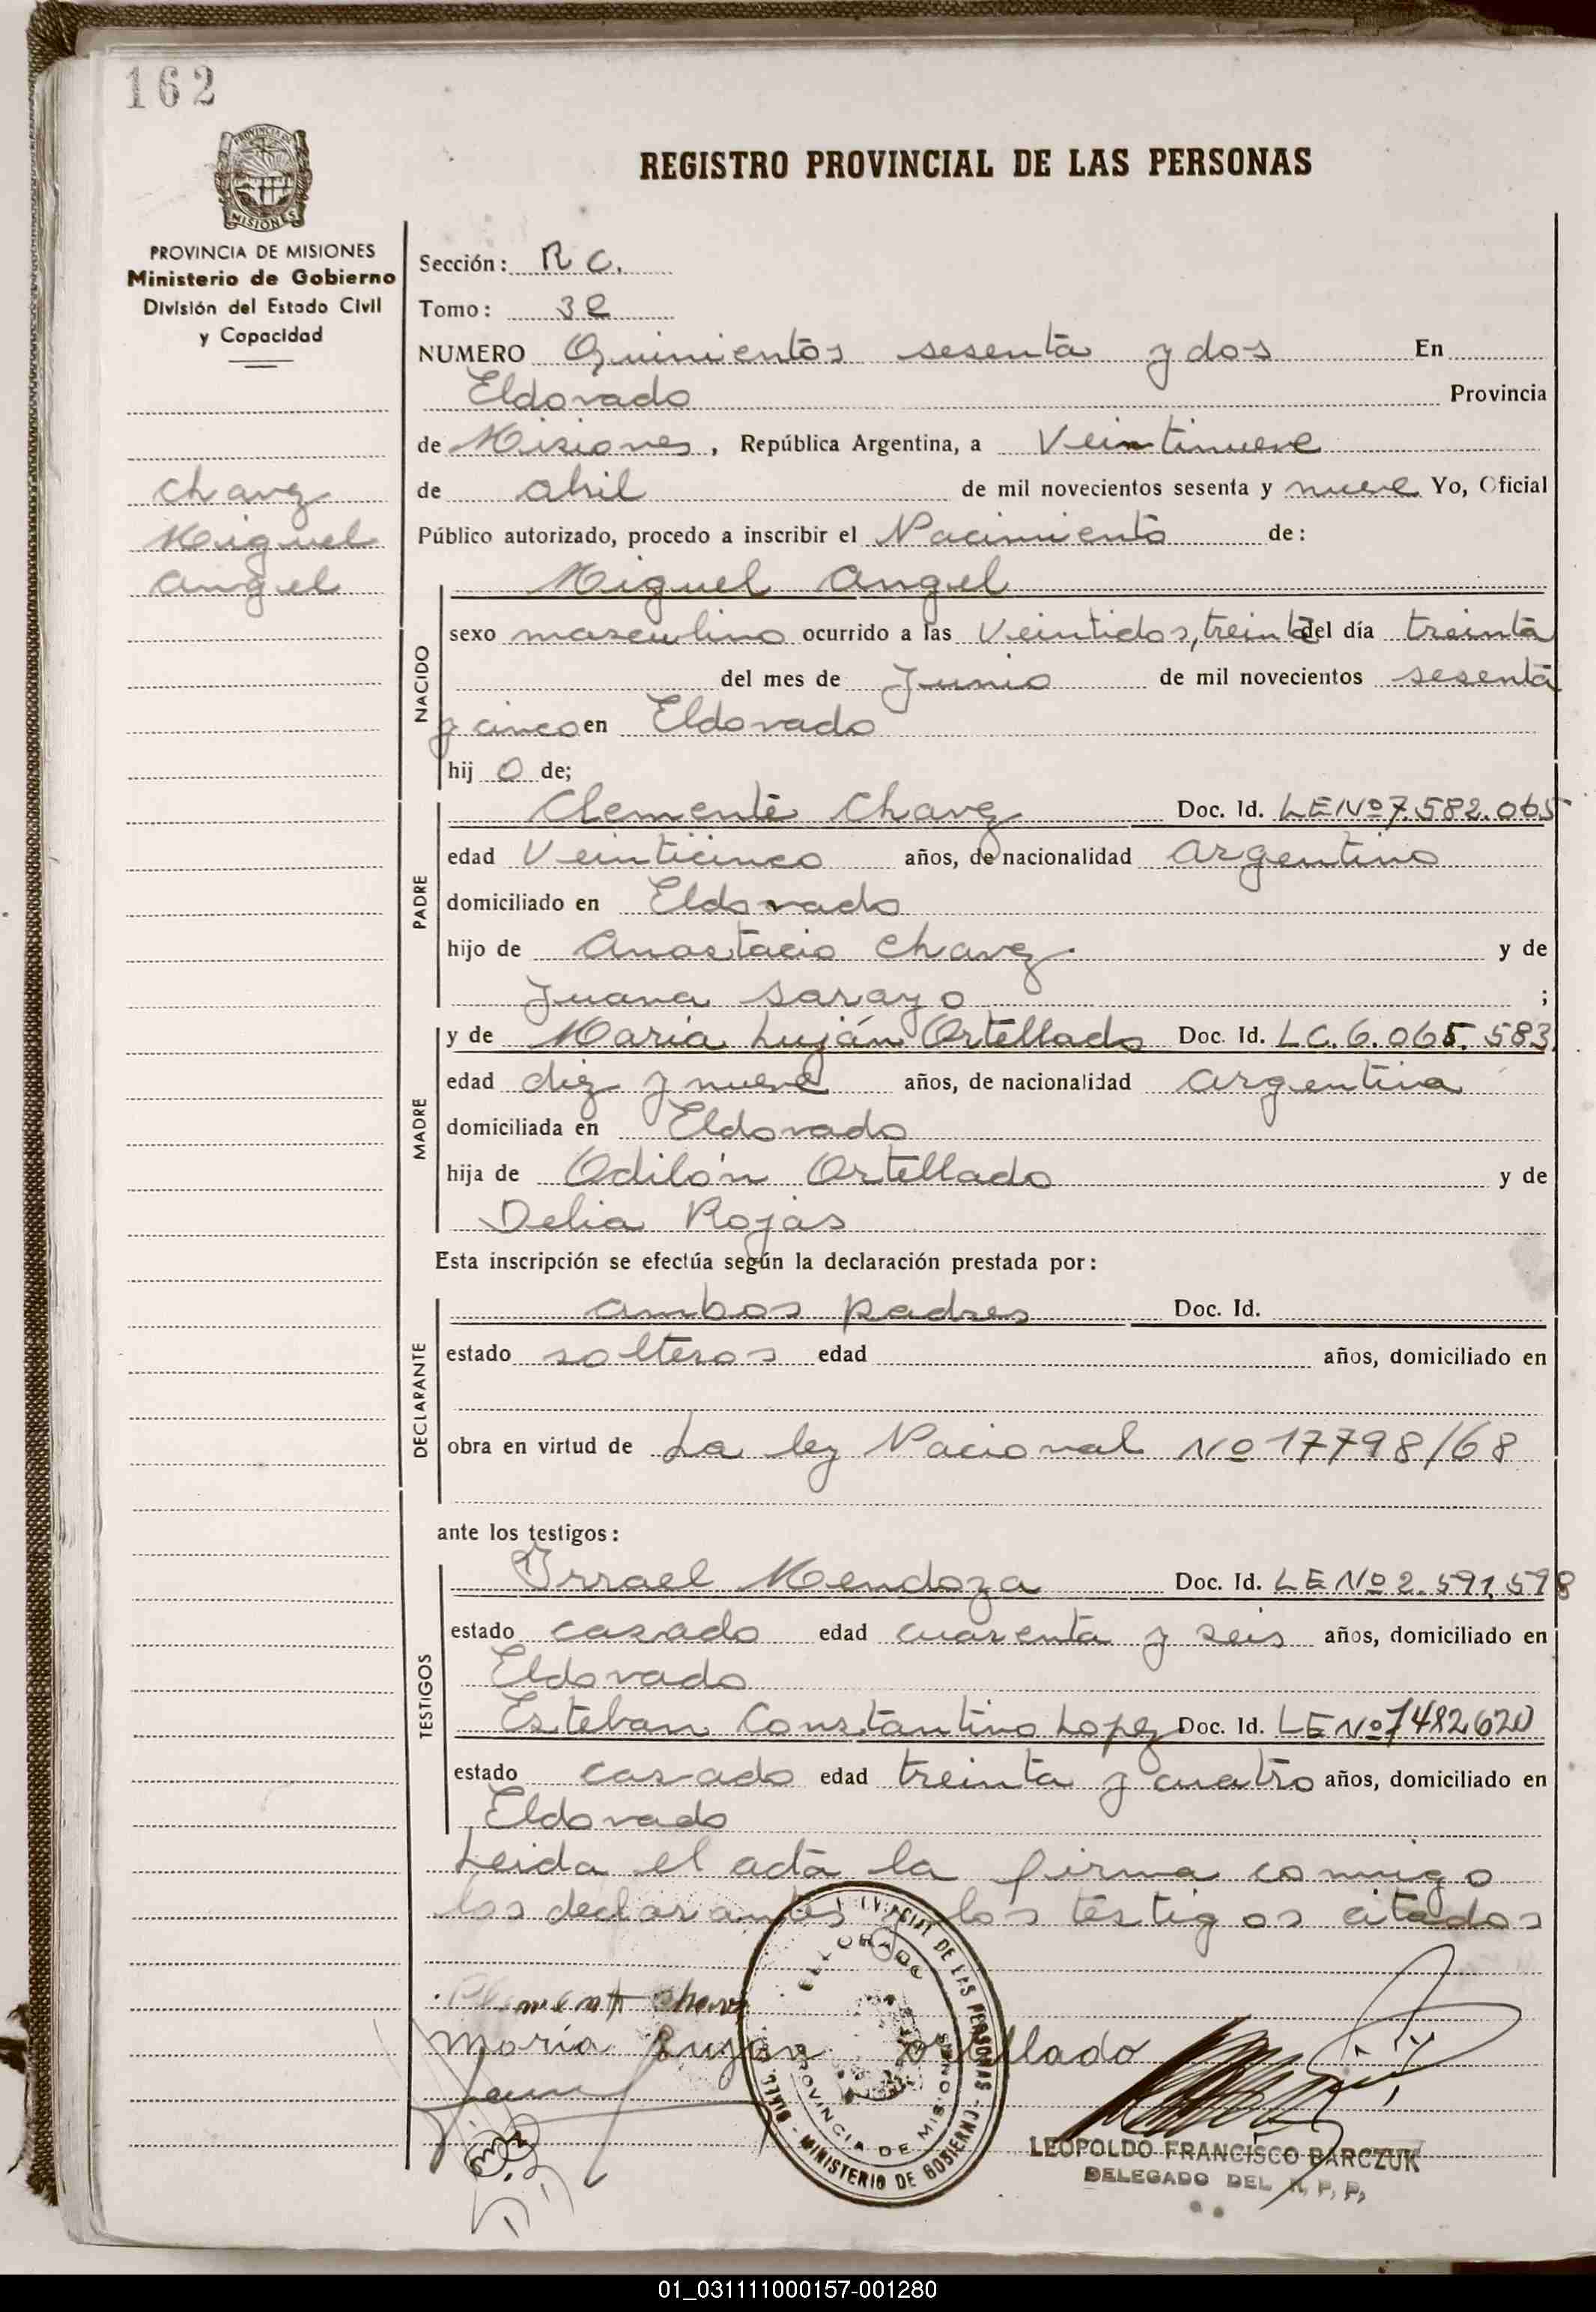 162
PROVINCIA DE MISIONES
MISIONES
PROVINCIA DE MISIONES
Ministerio de Gobierno
División del Estado Civil
y Capacidad
Chavez
Miguel
Angel
REGISTRO PROVINCIAL DE LAS PERSONAS
Sección: R C.
Tomo: 3º
NUMERO Quinientos sesenta y dos En
Eldorado Provincia
de Misiones, República Argentina, a Veintinueve
de abril de mil novecientos sesenta y nueve Yo, Oficial
Público autorizado, procedo a inscribir el Nacimiento de:
NACIDO
Miguel Angel
sexo masculino ocurrido a las Veintidos, treinta del día treinta
del mes de Junio de mil novecientos sesenta
y cinco en Eldorado
hij o de;
PADRE
Clemente Chavez Doc. Id. LE Nº 7.582.065
edad Veinticinco años, de nacionalidad argentino
domiciliado en Eldorado
hijo de Anastacio Chavez y de
Juana Sarayo ;
MADRE
y de Maria Luján Ortellado Doc. Id. L C. 6.065.583
edad diez y nueve años, de nacionalidad argentina
domiciliada en Eldorado
hija de Odilón Ortellado y de
Delia Rojas
Esta inscripción se efectúa según la declaración prestada por:
DECLARANTE
ambos padres Doc. Id.
estado solteros edad años, domiciliado en
obra en virtud de La ley Nacional Nº 17798/68
ante los testigos:
TESTIGOS
Israel Mendoza Doc. Id. LE Nº 2.591.598
estado casado edad cuarenta y seis años, domiciliado en
Eldorado
Esteban Constantino Lopez Doc. Id. LE Nº 7482620
estado casado edad treinta y cuatro años, domiciliado en
Eldorado
Leida el acta la firma conmigo
los declarantes y los testigos citados
Clement Chavez
maria Lujan Ortellado
ELDORADO
PROVINCIA DE MISIONES
DE LAS PERSONAS - MINISTERIO DE GOBIERNO
LEOPOLDO FRANCISCO BARCZUK
DELEGADO DEL R. P. P.
01_031111000157-001280